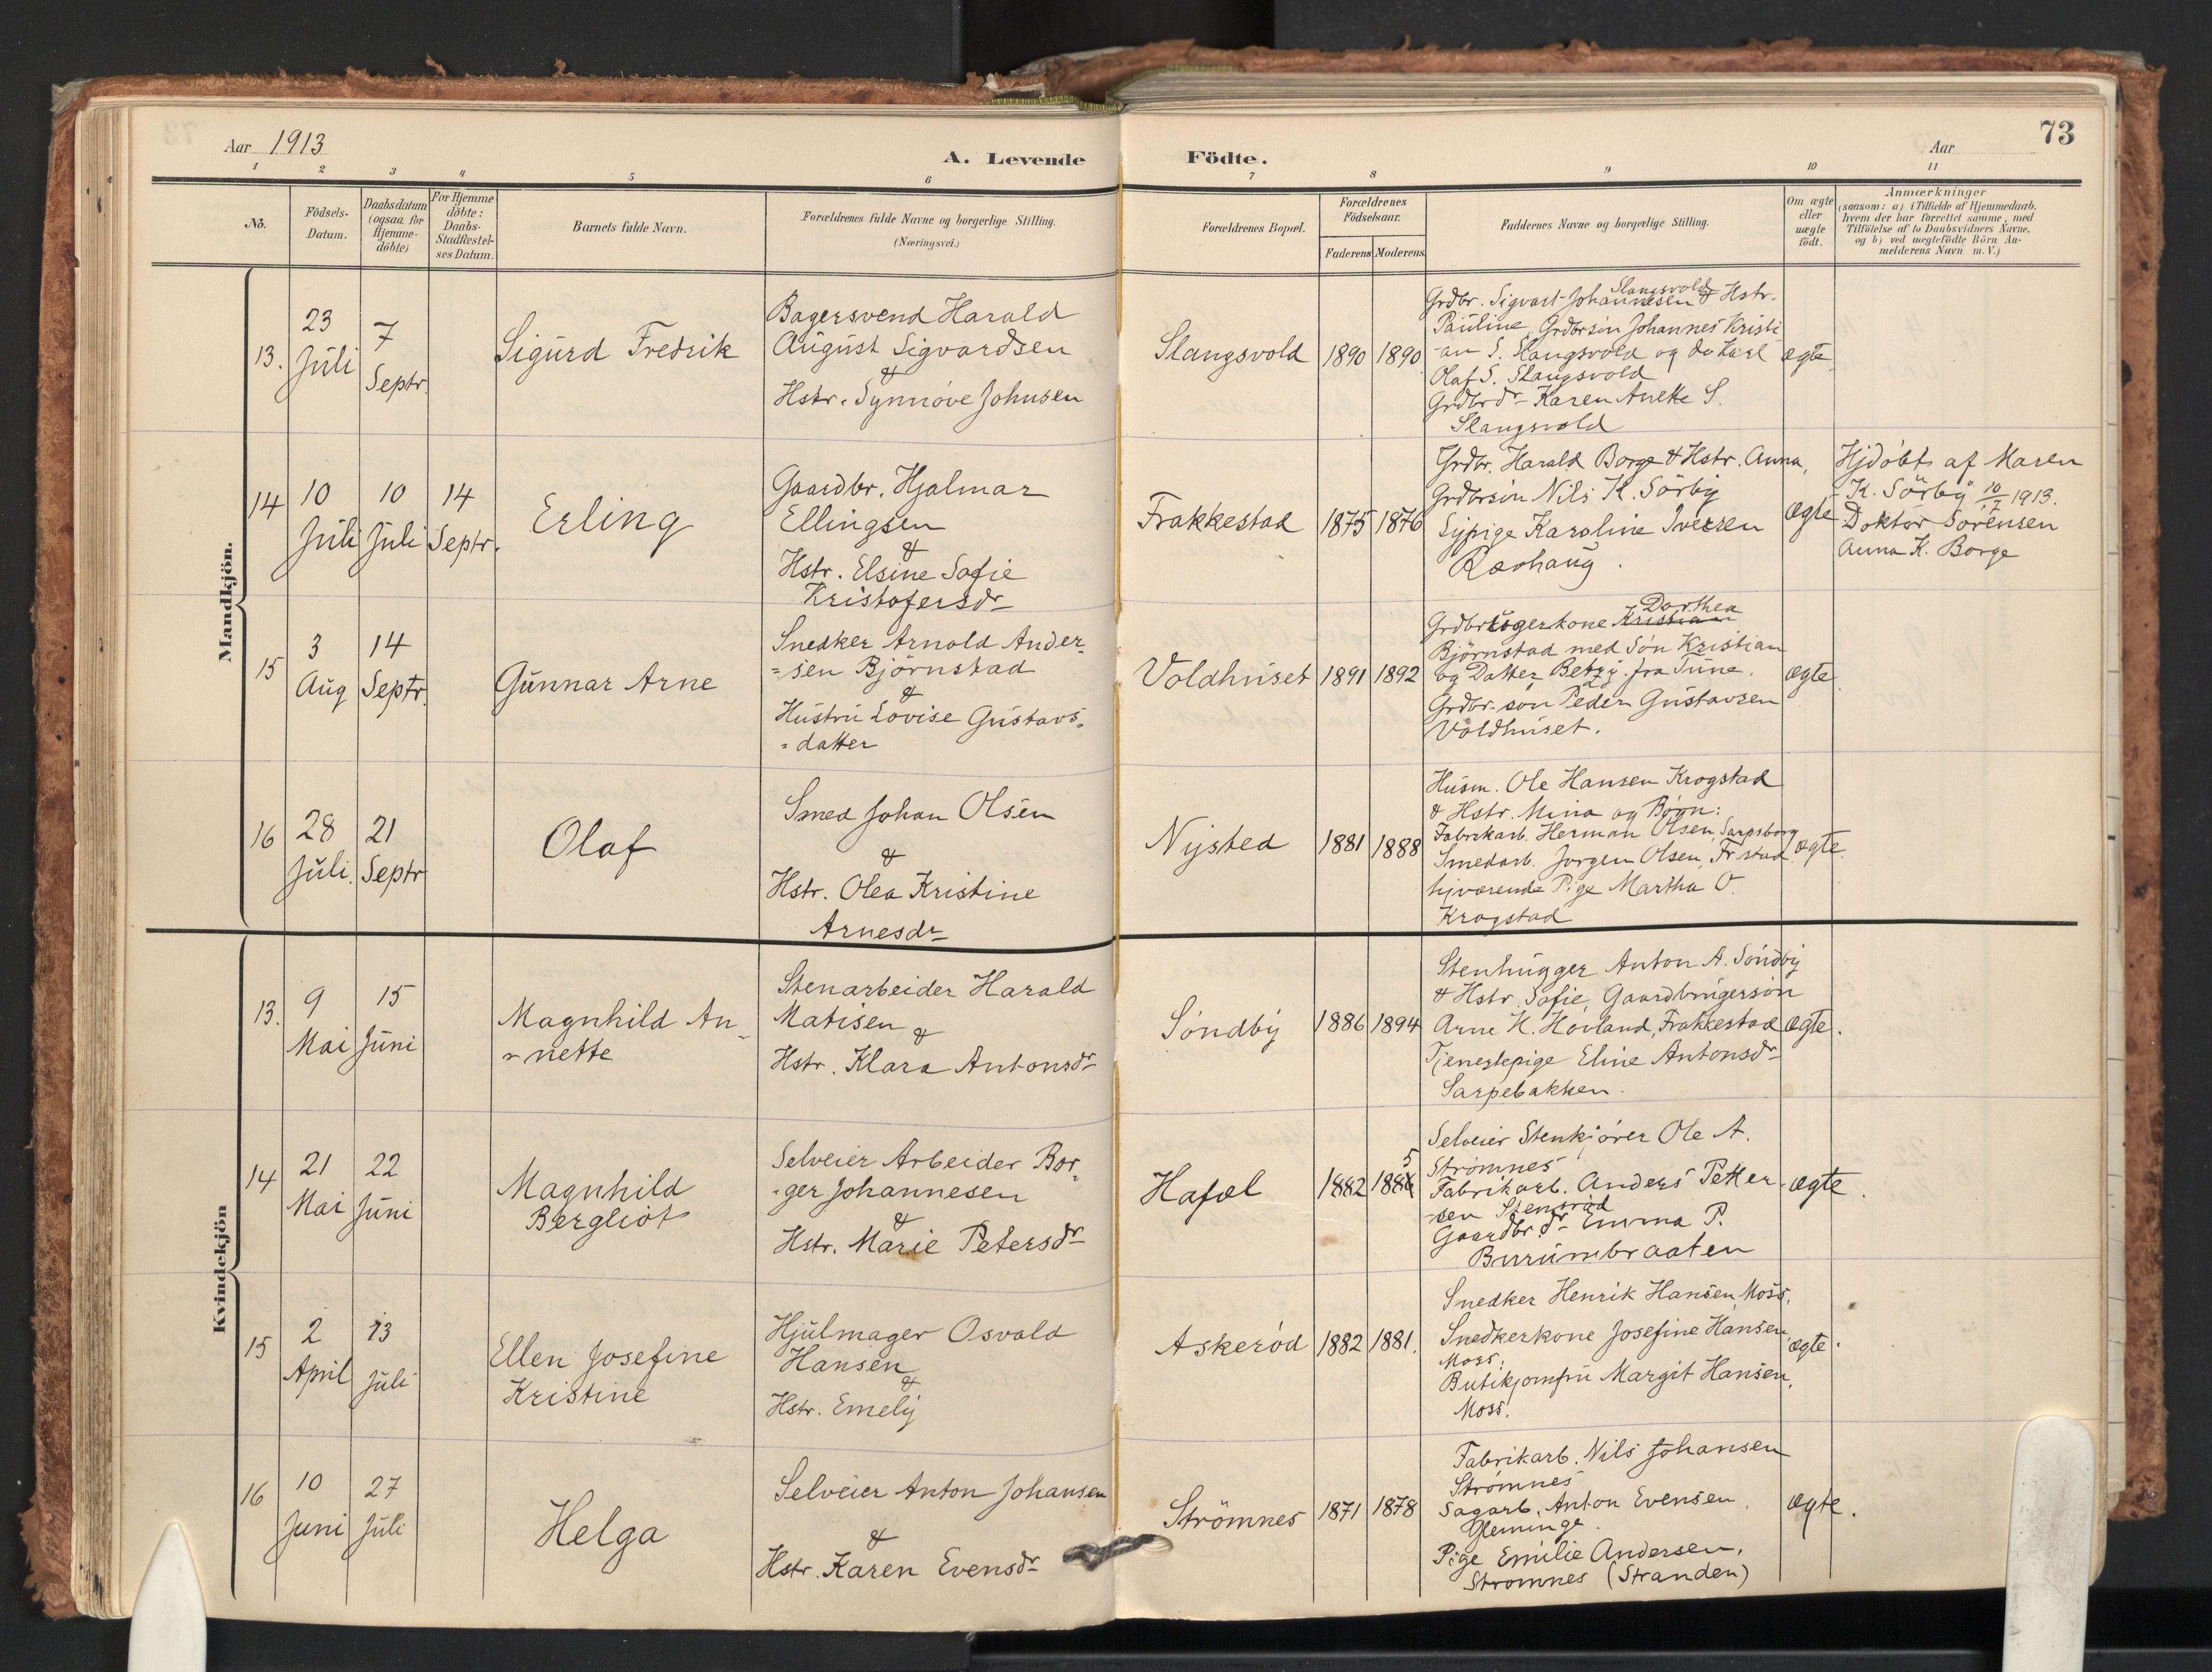 Aar 1913
A. Levende Födte.
Aar
73
1 2 3 4 5 6 7 8 9 10 11
No.
Födsels-
Datum.
Daabsdatum
(ogsaa for
Hjemme-
döbte)
For Hjemme
döbte:
Daabs-
Stadfæstel-
ses Datum.
Barnets fulde Navn.
Forældrenes fulde Navne og borgerlige Stilling.
(Næringsvei.)
Forældrenes Bopæl.
Forældrenes
Födselsaar.
Faderens Moderens
Faddernes Navne og borgerlige Stilling.
Om ægte
eller
uægte
födt.
Anmærkninger
(saasom: a) i Tilfælde af Hjemmedaab,
hvem der har forrettet samme, med
Tilföielse af to Daabsvidners Navne,
og b) ved uægtefödte Börn An-
melderens Navn m.V.)
Mandkjön.
13.
23
Juli
7
Septr.
Sigurd Fredrik
Bagersvend Harald
August Sigvardsen
&
Hstr. Synnöve Johnsen
Slangsvold
1890
1890
Grdbr. Sigvart Johannesen Slangsvold & Hstr.
Pauline, Grdbrsön Johannes Kristi
-an S. Slangsvold og do Karl
Olaf S. Slangsvold
Grdbrdr Karen Anette S.
Slangsvold
ægte.
14
10
Juli
10
Juli
14
Septr.
Erling
Gaardbr. Hjalmar
Ellingsen
&
Hstr. Elsine Sofie
Kristofersdr
Frakkestad
1875
1876
Grdbr. Harald Borge & Hstr. Anna,
Grdbrsön Nils K. Sörby
Sypige Karoline Iversen
Ravhaug.
ægte
Hjdöbt af Maren
K. Sörby 10/7 1913.
Doktor Sörensen
Anna K. Borge
15
3
Aug
14
Septr.
Gunnar Arne
Snedker Arnold Ander-
=sen Björnstad
&
Hustru Lovise Gustavs=
=datter
Voldhuset
1891
1892
Grdbrugerkone Kristian Dorthea
Björnstad med Sön Kristian
og Datter Betzy fra Tune.
Grdbr. sön Peder Gustavsen
Voldhuset.
ægte
16
28
Juli.
21
Septr
Olaf
Smed Johan Olsen
&
Hstr. Olea Kristine
Arnesdr
Nysted
1881
1888
Husm. Ole Hansen Krogstad
& Hstr. Mina og Börn:
Fabrikarb. Herman Olsen, Sarpsborg
Smedarb. Jörgen Olsen, Fr.stad
hjværende Pige Martha O.
Krogstad
ægte.
Kvindekjön
13.
9
Mai
15
Juni
Magnhild An-
-nette
Stenarbeider Harald
Matisen &
Hstr. Klara Antonsdr
Söndby
1886
1894
Stenhugger Anton A. Söndby
& Hstr. Sofie, Gaardbrugersön
Arne H. Hovland, Frakkestad
Tjenestepige Eline Antonsdr
Sarpebakken.
ægte.
14
21
Mai
22
Juni
Magnhild
Bergliot
Selveier Arbeider Bor-
-ger Johannesen
&
Hstr. Marie Petersdr
Hafæl
1882
1885
Selveier Stenkjörer Ole A.
Strömnes
Fabrikarb. Anders Petter-
-sen Stensröd
Gaardbr.dr Emma P.
Burumbraaten
ægte.
15
2
April
13
Juli
Ellen Josefine
Kristine
Hjulmager Osvald
Hansen
&
Hstr. Emely
Askeröd
1882
1881.
Snedker Henrik Hansen, Moss,
Snedkerkone Josefine Hansen,
Moss;
Butikjomfru Margit Hansen,
Moss.
ægte.
16
10
Juni
27
Juli
Helga
Selveier Anton Johansen
&
Hstr. Karen Evensdr
Strömnes
1871
1878
Fabrikarb. Nils Johansen
Strömnes
Sagarb. Anton Evensen,
Glemminge.
Pige Emilie Andersen,
Strömnes (Stranden)
ægte.